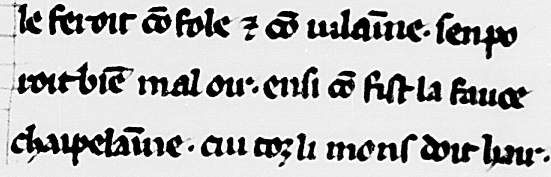 le feroit cō fole ⁊ cō uilaīne. sen po
roit biē mal oir. ensi cō fist la fauce
chaipelaīne. cui toz li mons doit hair.